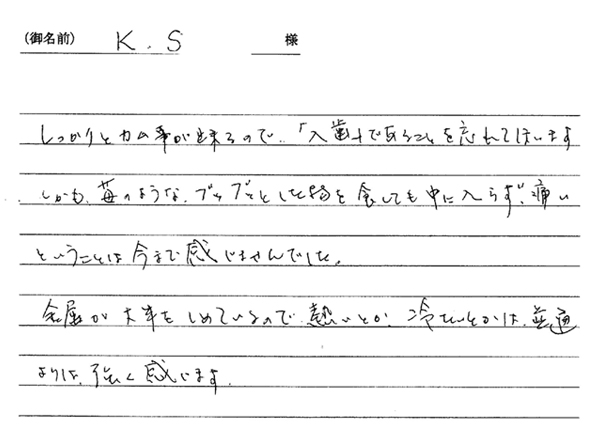 (御名前) K.S 様
しっかりとカム事が出来るので、「入歯」であることを忘れてしまいます
しかも、苺のような、ブツブツとした物を食しても中に入らず、痛い
ということは今まで感じませんでした。
金属が大半をしめているので、熱いとか、冷たいとかは、普通
よりは、強く感じます。